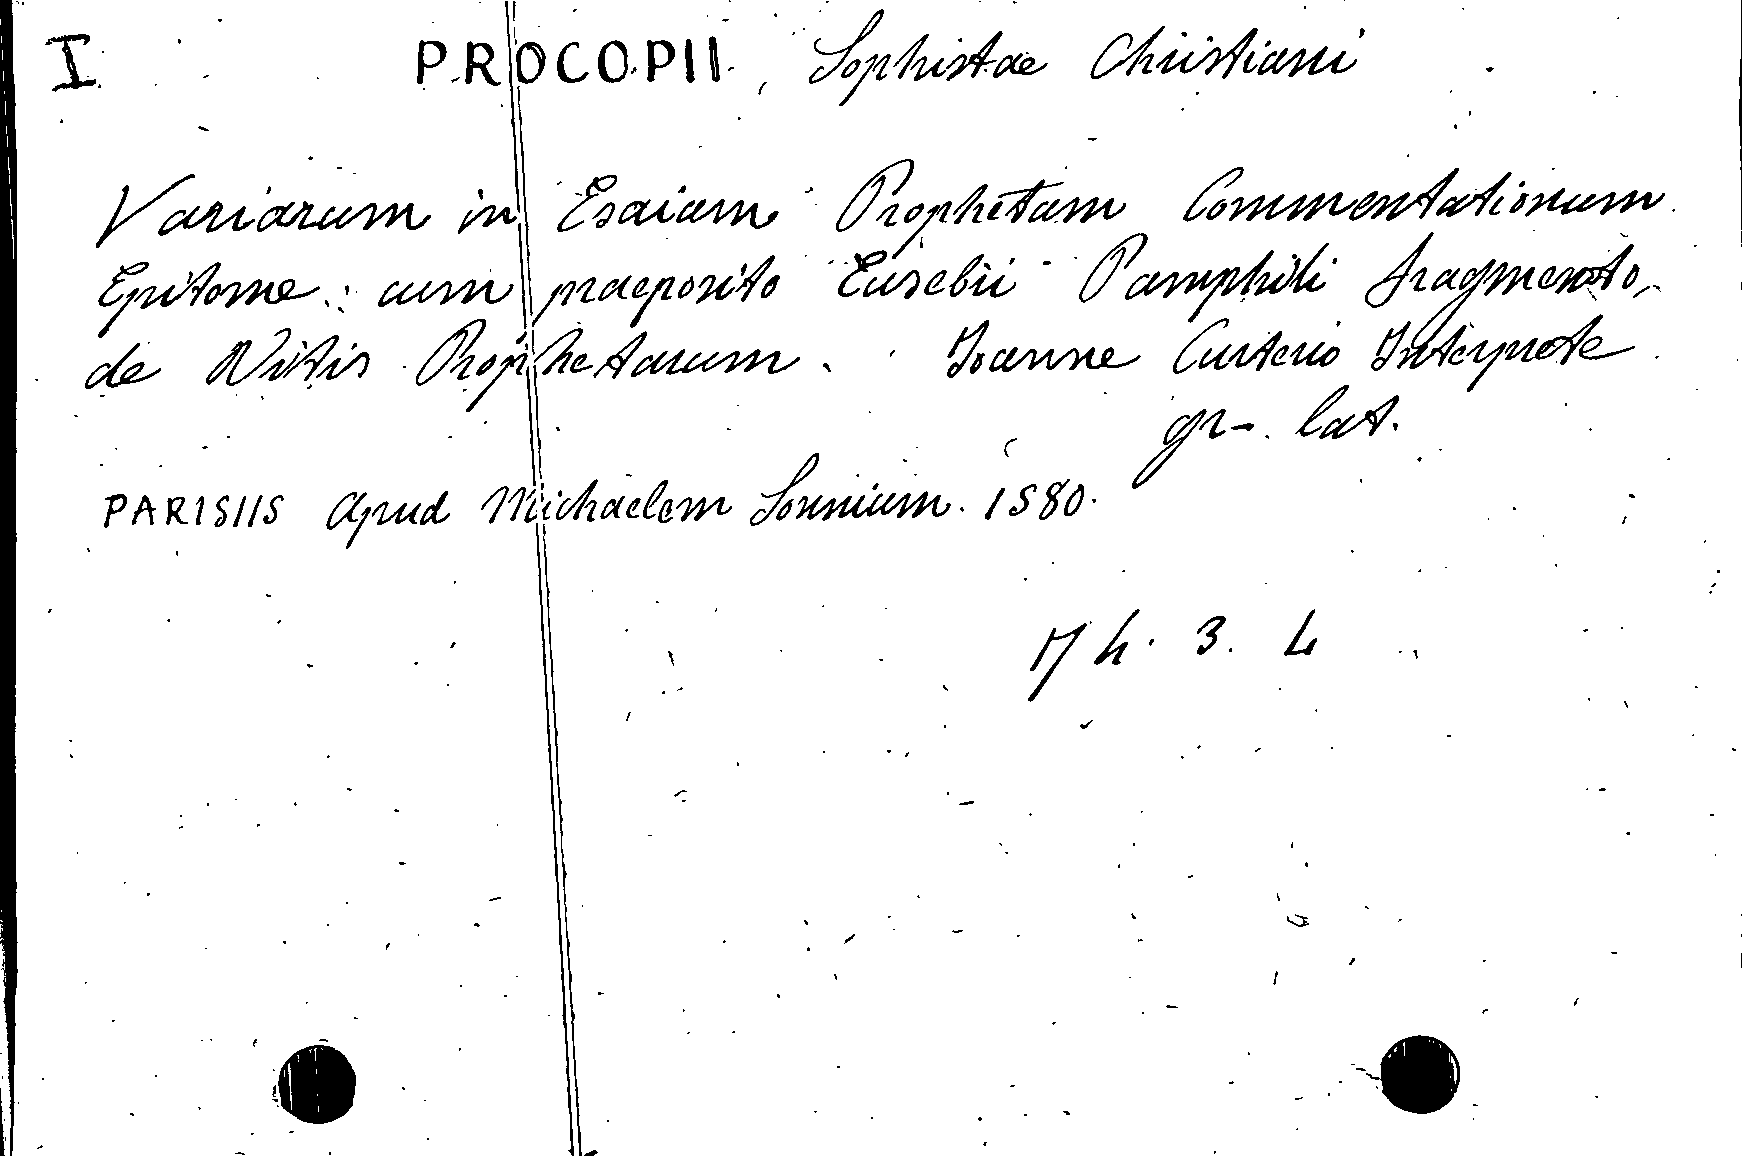 I PROCOPII, Sophistae Christiani
Variarum in Esaiam Prophetam Commentationum
Epitome: cum praeposito Eusebii Pamphili fragmento,
de Vitis Prophetarum. Joanne Curterio Interprete
gr-. lat.
PARISIIS apud Michaelem Sonnium. 1580.
17 h. 3. 4